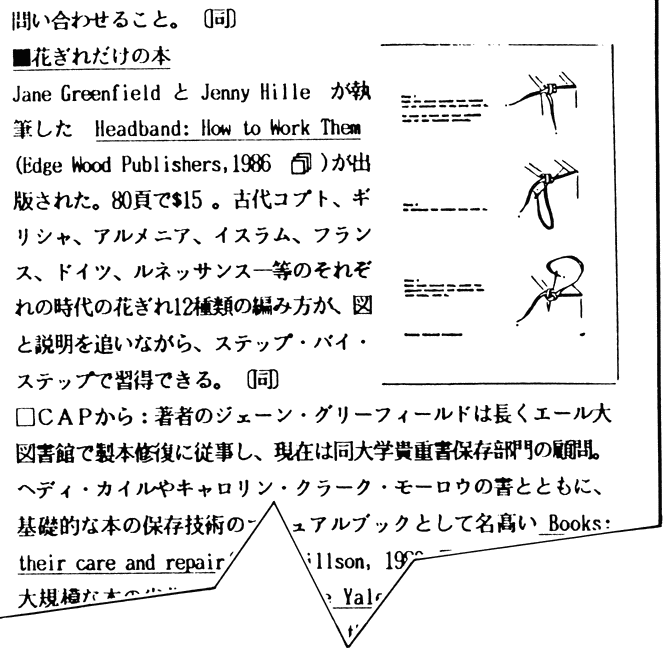 問い合わせること。〔同〕
■花ぎれだけの本
Jane Greenfield と Jenny Hille が執
筆した Headband: How to Work Them
(Edge Wood Publishers,1986 )が出
版された。80頁で$15 。古代コプト、ギ
リシャ、アルメニア、イスラム、フラン
ス、ドイツ、ルネッサンス一等のそれぞ
れの時代の花ぎれ12種類の編み方が、図
と説明を追いながら、ステップ・バイ・
ステップで習得できる。〔同〕
□CAPから：著者のジェーン・グリーフィールドは長くエール大
図書館で製本修復に従事し、現在は同大学貴重書保存部門の顧問。
ヘディ・カイルやキャロリン・クラーク・モーロウの書とともに、
基礎的な本の保存技術の ュアルブックとして名高い Books:
their care and repair illson, 19
大規模な本の
Yale